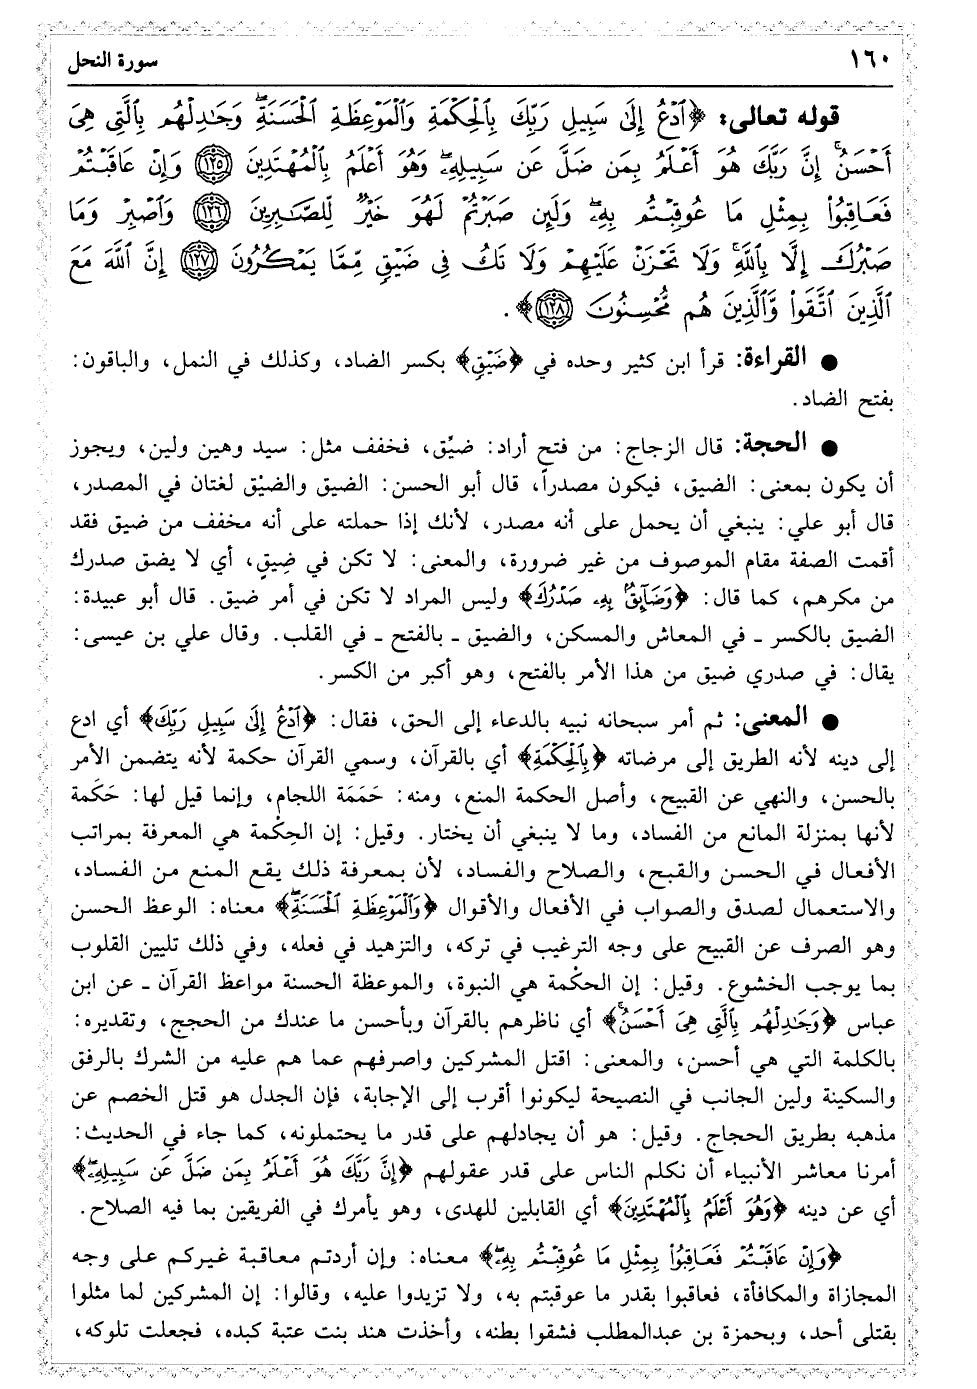 ١٦٠ سورة النحل
قوله تعالى: ﴿ٱدْعُ إِلَىٰ سَبِيلِ رَبِّكَ بِٱلْحِكْمَةِ وَٱلْمَوْعِظَةِ ٱلْحَسَنَةِ ۖ وَجَٰدِلْهُم بِٱلَّتِى هِىَ
أَحْسَنُ ۚ إِنَّ رَبَّكَ هُوَ أَعْلَمُ بِمَن ضَلَّ عَن سَبِيلِهِۦ ۖ وَهُوَ أَعْلَمُ بِٱلْمُهْتَدِينَ ﴿١٢٥﴾ وَإِنْ عَاقَبْتُمْ
فَعَاقِبُوا۟ بِمِثْلِ مَا عُوقِبْتُم بِهِۦ ۖ وَلَئِن صَبَرْتُمْ لَهُوَ خَيْرٌ لِّلصَّٰبِرِينَ ﴿١٢٦﴾ وَٱصْبِرْ وَمَا
صَبْرُكَ إِلَّا بِٱللَّهِ ۚ وَلَا تَحْزَنْ عَلَيْهِمْ وَلَا تَكُ فِى ضَيْقٍ مِّمَّا يَمْكُرُونَ ﴿١٢٧﴾ إِنَّ ٱللَّهَ مَعَ
ٱلَّذِينَ ٱتَّقَوا۟ وَّٱلَّذِينَ هُم مُّحْسِنُونَ ﴿١٢٨﴾﴾.
● القراءة: قرأ ابن كثير وحده في ﴿ضَيْقٍ﴾ بكسر الضاد، وكذلك في النمل، والباقون:
بفتح الضاد.
● الحجة: قال الزجاج: من فتح أراد: ضيِّق، فخفف مثل: سيد وهين ولين، ويجوز
أن يكون بمعنى: الضيق، فيكون مصدراً، قال أبو الحسن: الضيق والضيْق لغتان في المصدر،
قال أبو علي: ينبغي أن يحمل على أنه مصدر، لأنك إذا حملته على أنه مخفف من ضيق فقد
أقمت الصفة مقام الموصوف من غير ضرورة، والمعنى: لا تكن في ضِيقٍ، أي لا يضق صدرك
من مكرهم، كما قال: ﴿وَضَآئِقٌۢ بِهِۦ صَدْرُكَ﴾ وليس المراد لا تكن في أمر ضيق. قال أبو عبيدة:
الضيق بالكسر ـ في المعاش والمسكن، والضيق ـ بالفتح ـ في القلب. وقال علي بن عيسى:
يقال: في صدري ضيق من هذا الأمر بالفتح، وهو أكبر من الكسر.
● المعنى: ثم أمر سبحانه نبيه بالدعاء إلى الحق، فقال: ﴿ٱدْعُ إِلَىٰ سَبِيلِ رَبِّكَ﴾ أي ادع
إلى دينه لأنه الطريق إلى مرضاته ﴿بِٱلْحِكْمَةِ﴾ أي بالقرآن، وسمي القرآن حكمة لأنه يتضمن الأمر
بالحسن، والنهي عن القبيح، وأصل الحكمة المنع، ومنه: حَمَمَة اللجام، وإنما قيل لها: حَكَمة
لأنها بمنزلة المانع من الفساد، وما لا ينبغي أن يختار. وقيل: إن الحِكْمة هي المعرفة بمراتب
الأفعال في الحسن والقبح، والصلاح والفساد، لأن بمعرفة ذلك يقع المنع من الفساد،
والاستعمال لصدق والصواب في الأفعال والأقوال ﴿وَٱلْمَوْعِظَةِ ٱلْحَسَنَةِ ۖ﴾ معناه: الوعظ الحسن
وهو الصرف عن القبيح على وجه الترغيب في تركه، والتزهيد في فعله، وفي ذلك تليين القلوب
بما يوجب الخشوع. وقيل: إن الحكْمة هي النبوة، والموعظة الحسنة مواعظ القرآن ـ عن ابن
عباس ﴿وَجَٰدِلْهُم بِٱلَّتِى هِىَ أَحْسَنُ ۚ﴾ أي ناظرهم بالقرآن وبأحسن ما عندك من الحجج، وتقديره:
بالكلمة التي هي أحسن، والمعنى: اقتل المشركين واصرفهم عما هم عليه من الشرك بالرفق
والسكينة ولين الجانب في النصيحة ليكونوا أقرب إلى الإجابة، فإن الجدل هو قتل الخصم عن
مذهبه بطريق الحجاج. وقيل: هو أن يجادلهم على قدر ما يحتملونه، كما جاء في الحديث:
أمرنا معاشر الأنبياء أن نكلم الناس على قدر عقولهم ﴿إِنَّ رَبَّكَ هُوَ أَعْلَمُ بِمَن ضَلَّ عَن سَبِيلِهِۦ ۖ﴾
أي عن دينه ﴿وَهُوَ أَعْلَمُ بِٱلْمُهْتَدِينَ﴾ أي القابلين للهدى، وهو يأمرك في الفريقين بما فيه الصلاح.
﴿وَإِنْ عَاقَبْتُمْ فَعَاقِبُوا۟ بِمِثْلِ مَا عُوقِبْتُم بِهِۦ ۖ﴾ معناه: وإن أردتم معاقبة غيركم على وجه
المجازاة والمكافأة، فعاقبوا بقدر ما عوقبتم به، ولا تزيدوا عليه، وقالوا: إن المشركين لما مثلوا
بقتلى أحد، وبحمزة بن عبدالمطلب فشقوا بطنه، وأخذت هند بنت عتبة كبده، فجعلت تلوكه،